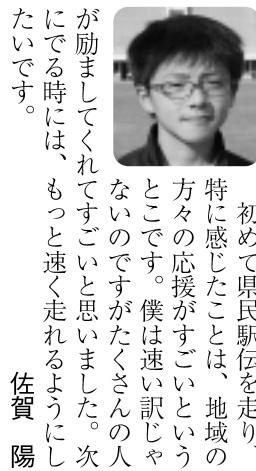 初めて県民駅伝を走り、
特に感じたことは、地域の
方々の応援がすごいという
とこです。僕は速い訳じゃ
ないのですがたくさんの人
が励ましてくれてすごいと思いました。次
にでる時には、もっと速く走れるようにし
たいです。
佐賀 陽